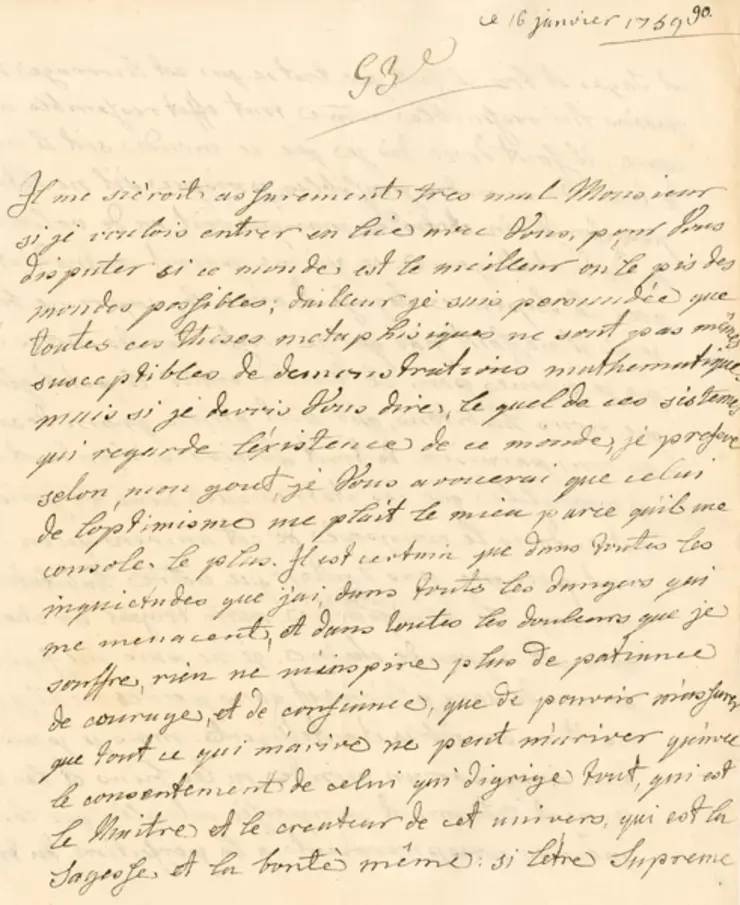 ce 16 janvier 1759
90.
G 3e
Il me siéroit assurement tres mal Monsieur
si je voulois entrer en lice avec Vous, pour Vous
disputer si ce monde est le meilleur ou le pis des
mondes possibles; dailleur je suis persuadée que
toutes ces theses metaphisiques ne sont pas mêmes
susceptibles de demonstrations mathematiques
mais si je devris Vous dire, le quel de ces sistemes
qui regarde l'éxistence de ce monde, je prefere
selon mon gout, je Vous avouerai que celui
de l'optimisme me plait le mieu parce qu'il me
console le plus. Il est certain que dans toutes les
inquietudes que j'ai, dans touts les dangers qui
me menacent, et dans toutes les douleurs que je
souffre, rien ne m'inspire plus de patience
de courage, et de confiance, que de pouvoir m'assurer
que tout ce qui m'arive ne peut m'ariver qu'avec
le consentement de celui qui digrige tout, qui est
le Maitre et le createur de cet univers, qui est la
Sagesse et la bonté même: si letre Supreme